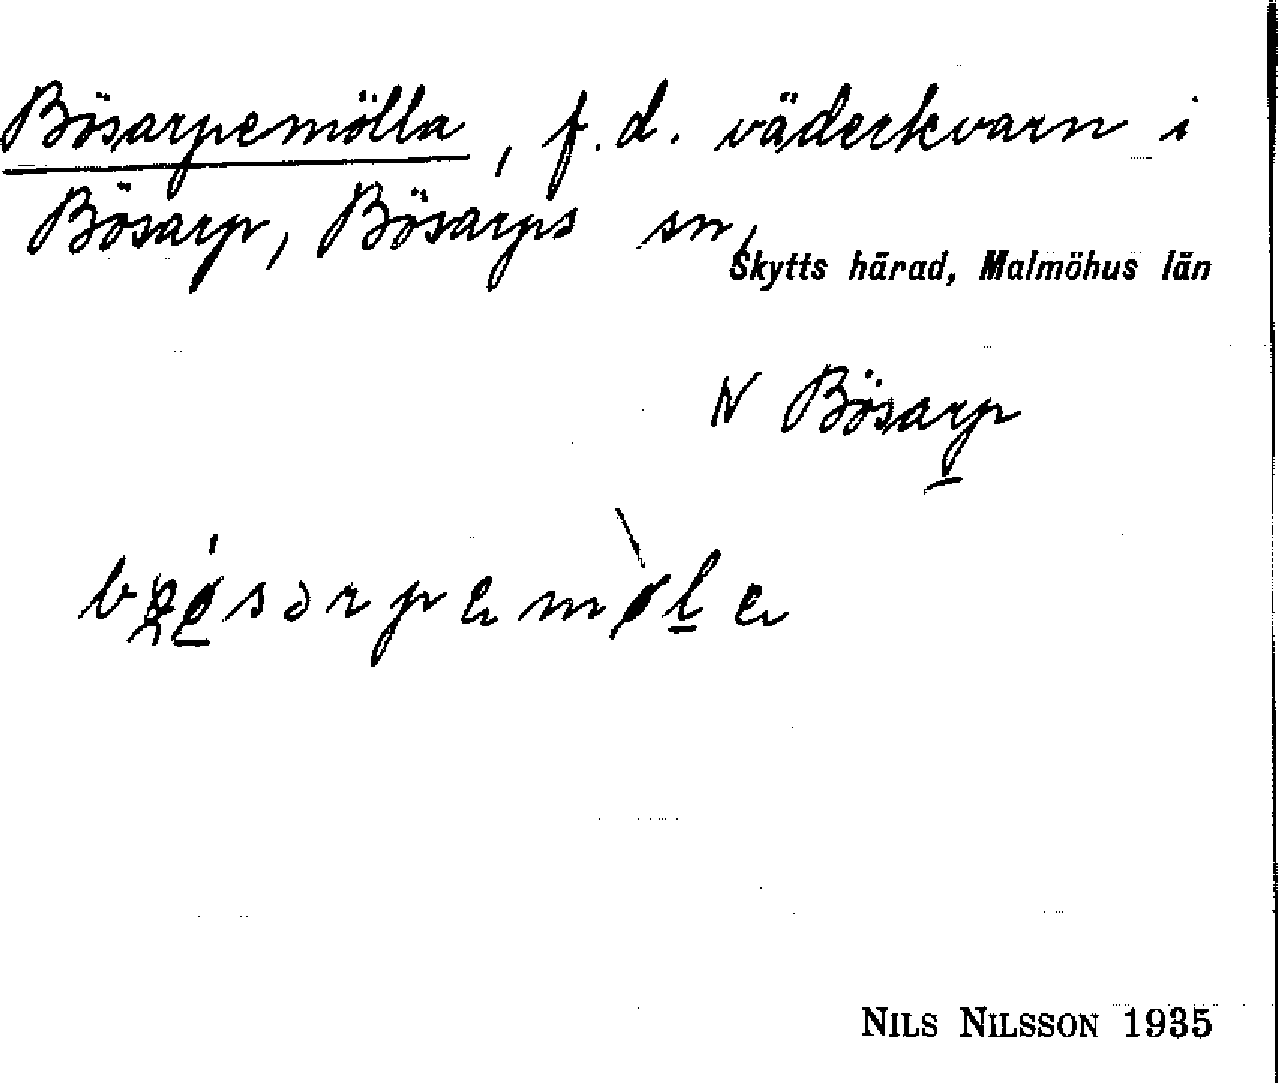 Bösarpemölla, f.d. väderkvarn i
Bösarp, Bösarps sn,
Skytts härad, Malmöhus län
N Bösarp
NILS NILSSON 1935